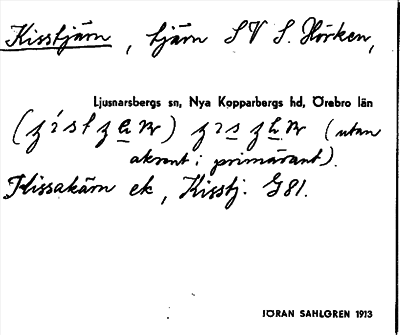 Kisstjärn, tjärn SV S. Hörken,
Ljusnarsbergs sn, Nya Kopparbergs hd, Örebro län
(utan
akcent i primärant).
Kissakärn ek, Kisstj. G81.
JÖRAN SAHLGREN 1913